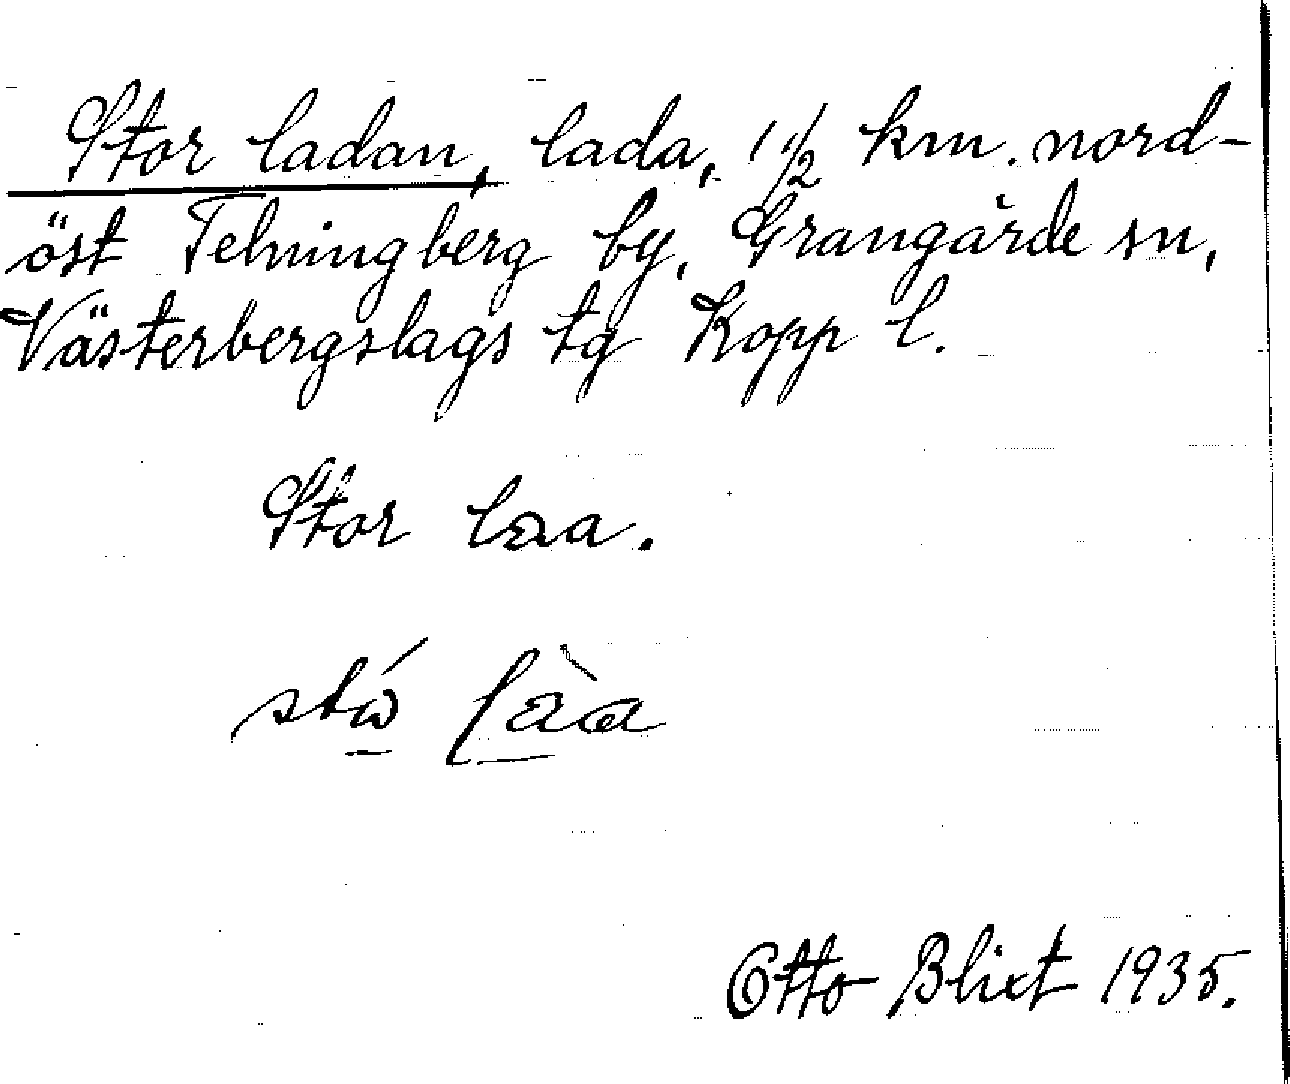 Stor ladan, lada, 1 1/2 km. nord-
öst Telningberg by, Grangärde sn,
Västerbergslags tg Kopp l.
Stor laa.
Otto Blixt 1935.